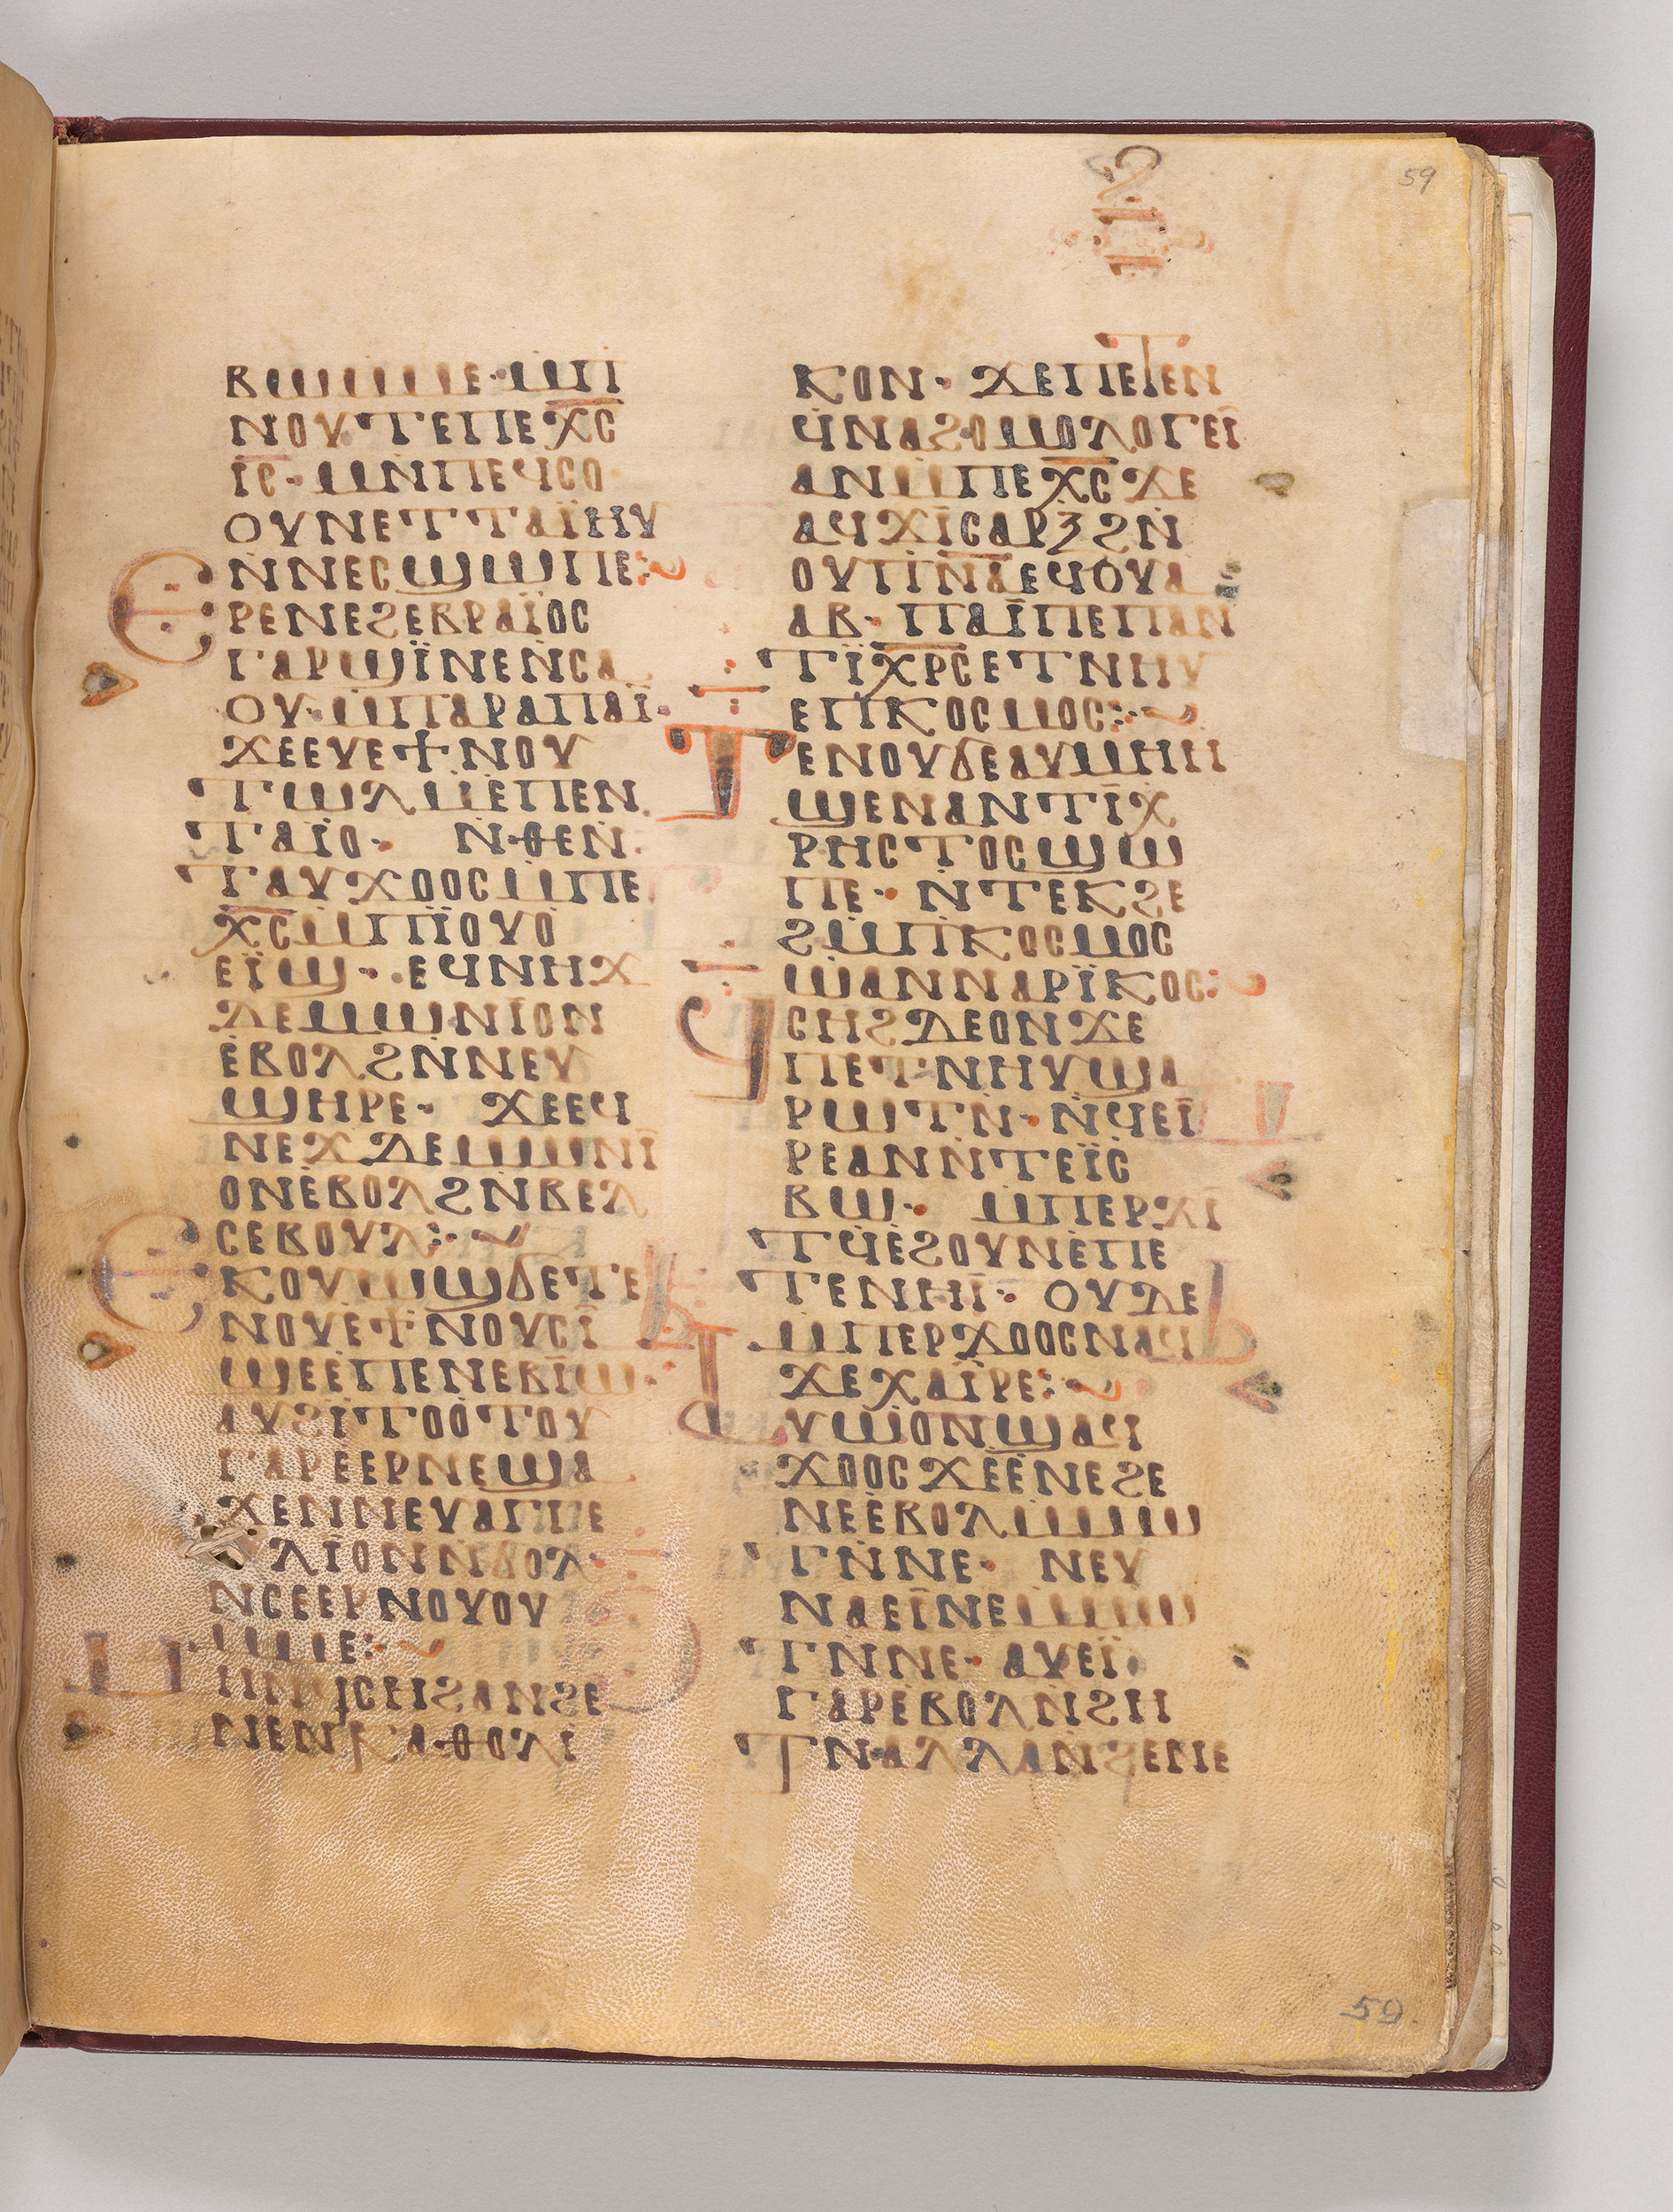 59
ⲃϣⲙⲙⲉ· ⲙⲡⲓ
ⲛⲟⲩⲧⲉⲡⲉⲭ̅ⲥ̅
ⲓ̅ⲥ̅· ⲙⲛⲡⲉϥⲥⲟ
ⲟⲩⲛⲉⲧⲧⲁⲓ̈ⲏⲩ
ⲛⲛⲉⲥϣⲱⲡⲉ:~
ⲉⲣⲉⲛⲉϩⲉⲃⲣⲁⲓ̈ⲟⲥ
ⲅⲁⲣϣⲓ̈ⲛⲉⲛⲥⲁ
ⲟⲩ· ⲙⲡⲁⲣⲁⲡⲁⲓ̈·
ϫⲉⲉⲩⲉϯⲛⲟⲩ
ⲧⲱⲗⲙⲉⲡⲉⲛ
ⲧⲁⲓⲟ· ⲛⲑⲉⲛ
ⲧⲁⲩϫⲟⲟⲥⲙⲡⲉ
ⲭ̅ⲥ̅ⲙⲡⲓ̈ⲟⲩⲟ
ⲉⲓ̈ϣ· ⲉϥⲛⲏϫ
ⲇⲉⲙⲱⲛⲓⲟⲛ
ⲉⲃⲟⲗϩⲛⲛⲉⲩ
ϣⲏⲣⲉ· ϫⲉⲉϥ
ⲛⲉϫⲇⲉⲙⲱⲛⲓ
ⲟⲛⲉⲃⲟⲗϩⲛⲃⲉⲗ
ⲥⲉⲃⲟⲩⲗ:~
ⲉⲕⲟⲩⲱϣϭⲉⲧⲉ
ⲛⲟⲩⲉϯⲛⲟⲩⲥⲓ
ϣⲉⲉⲡⲉⲛⲉⲃⲓⲱ·
ⲁⲩϩⲓⲧⲟⲟⲧⲟⲩ
ⲅⲁⲣⲉⲉⲣⲛⲉϣⲁ
ϫⲉⲛⲛⲉⲩⲁⲅⲅⲉ
ⲗⲓⲟⲛⲛϭⲟⲗ·
ⲛⲥⲉⲉⲣⲛⲟⲩⲟⲩ
ⲙⲙⲉ:~
ⲛⲉⲛⲕⲁⲑⲟⲗⲓ
ⲕⲟⲛ· ϫⲉⲡⲉⲧⲉⲛ
ϥⲛⲁϩⲟⲙⲟⲗⲟⲅⲉⲓ
ⲁⲛⲙⲡⲉⲭ̅ⲥ̅ϫⲉ
ⲁϥϫⲓⲥⲁⲣⲝϩⲛ
ⲟⲩⲡ̅ⲛ̅ⲁ̅ⲉϥⲟⲩⲁ
ⲁⲃ· ⲡⲁⲓ̈ⲡⲉⲡⲁⲛ
ⲧⲓ̈ⲭ̅ⲣ̅ⲥⲉⲧⲛⲏⲩ
ⲉⲡⲕⲟⲥⲙⲟⲥ:~
ⲧⲉⲛⲟⲩϭⲉⲁⲩⲙⲏⲏ
ϣⲉⲛⲁⲛⲧⲓⲭ
ⲣⲏⲥⲧⲟⲥϣⲱ
ⲡⲉ· ⲛⲧⲉⲕϩⲉ
ϩⲙⲡⲕⲟⲥⲙⲟⲥ
ⲱⲁⲛⲛⲁⲣⲓ̈ⲕⲟⲥ:~
ϥⲥⲏϩⲇⲉⲟⲛϫⲉ
ⲡⲉⲧⲛⲏⲩϣⲁ
ⲣⲱⲧⲛ· ⲛϥⲉⲓ
ⲣⲉⲁⲛⲛⲧⲉⲓ̈ⲥ
ⲃⲱ· ⲙⲡⲉⲣϫⲓ
ⲧϥⲉϩⲟⲩⲛⲉⲡⲉ
ⲧⲉⲛⲏⲓ̈· ⲟⲩⲇⲉ
ⲙⲡⲉⲣϫⲟⲟⲥⲛⲁϥ
ϫⲉⲭⲁⲓ̈ⲣⲉ:~
ⲁⲩⲱⲟⲛϣⲁϥ
ϫⲟⲟⲥϫⲉⲉⲛⲉϩⲉ
ⲛⲉⲉⲃⲟⲗⲙⲙⲱ
ⲧⲛⲛⲉ· ⲛⲉⲩ
ⲛⲁⲉⲓⲛⲉⲙⲙⲱ
ⲧⲛⲛⲉ· ⲁⲩⲉⲓ̈
ⲅⲁⲣⲉⲃⲟⲗⲛϩⲏ
ⲧⲛⲁⲗⲗⲁⲛϩⲉⲛⲉ
59